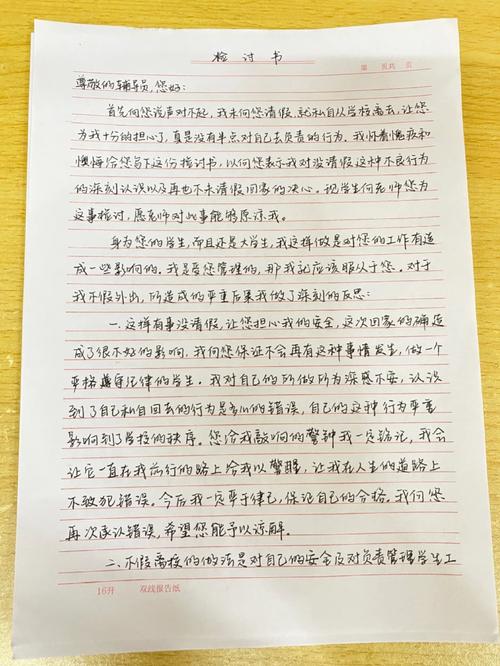 检讨书
第 页共 页
尊敬的辅导员,您好:
首先向您说声对不起,我未向您请假,就私自从学校离去,让您
为我十分的担心了,真是没有半点对自己去负责的行为。我怀着愧疚和
懊悔给您写下这份检讨书,以向您表示我对没请假这种不良行为
的深刻认识以及再也不未请假回家的决心。现学生向老师您为
这事检讨,愿老师对此事能够原谅我。
身为您的学生,而且还是大学生,我这样做是对您的工作有造
成一些影响的。我是受您管理的,那我就应该服从于您。对于
我不假外出,所造成的严重后果我做了深刻的反思:
一.这样有事没请假,让您担心我的安全,这次回家的确造
成了很不好的影响,我向您保证不会再有这种事情发生,做一个
严格遵守纪律的学生。我对自己的所做所为深感不安,认识
到了自己私自回去的行为是多么的错误,自己的这种行为严重
影响到了学校的秩序。您给我敲响的警钟我一定铭记,我会
让它一直在我前行的路上给我以警醒,让我在人生的道路上
不敢犯错误。今后我一定严于律己,保证自己的合格。我向您
再次承认错误,希望您能予以谅解。
二.不假离校的做法是对自己的安全及对负责管理学生工
16开 双线报告纸